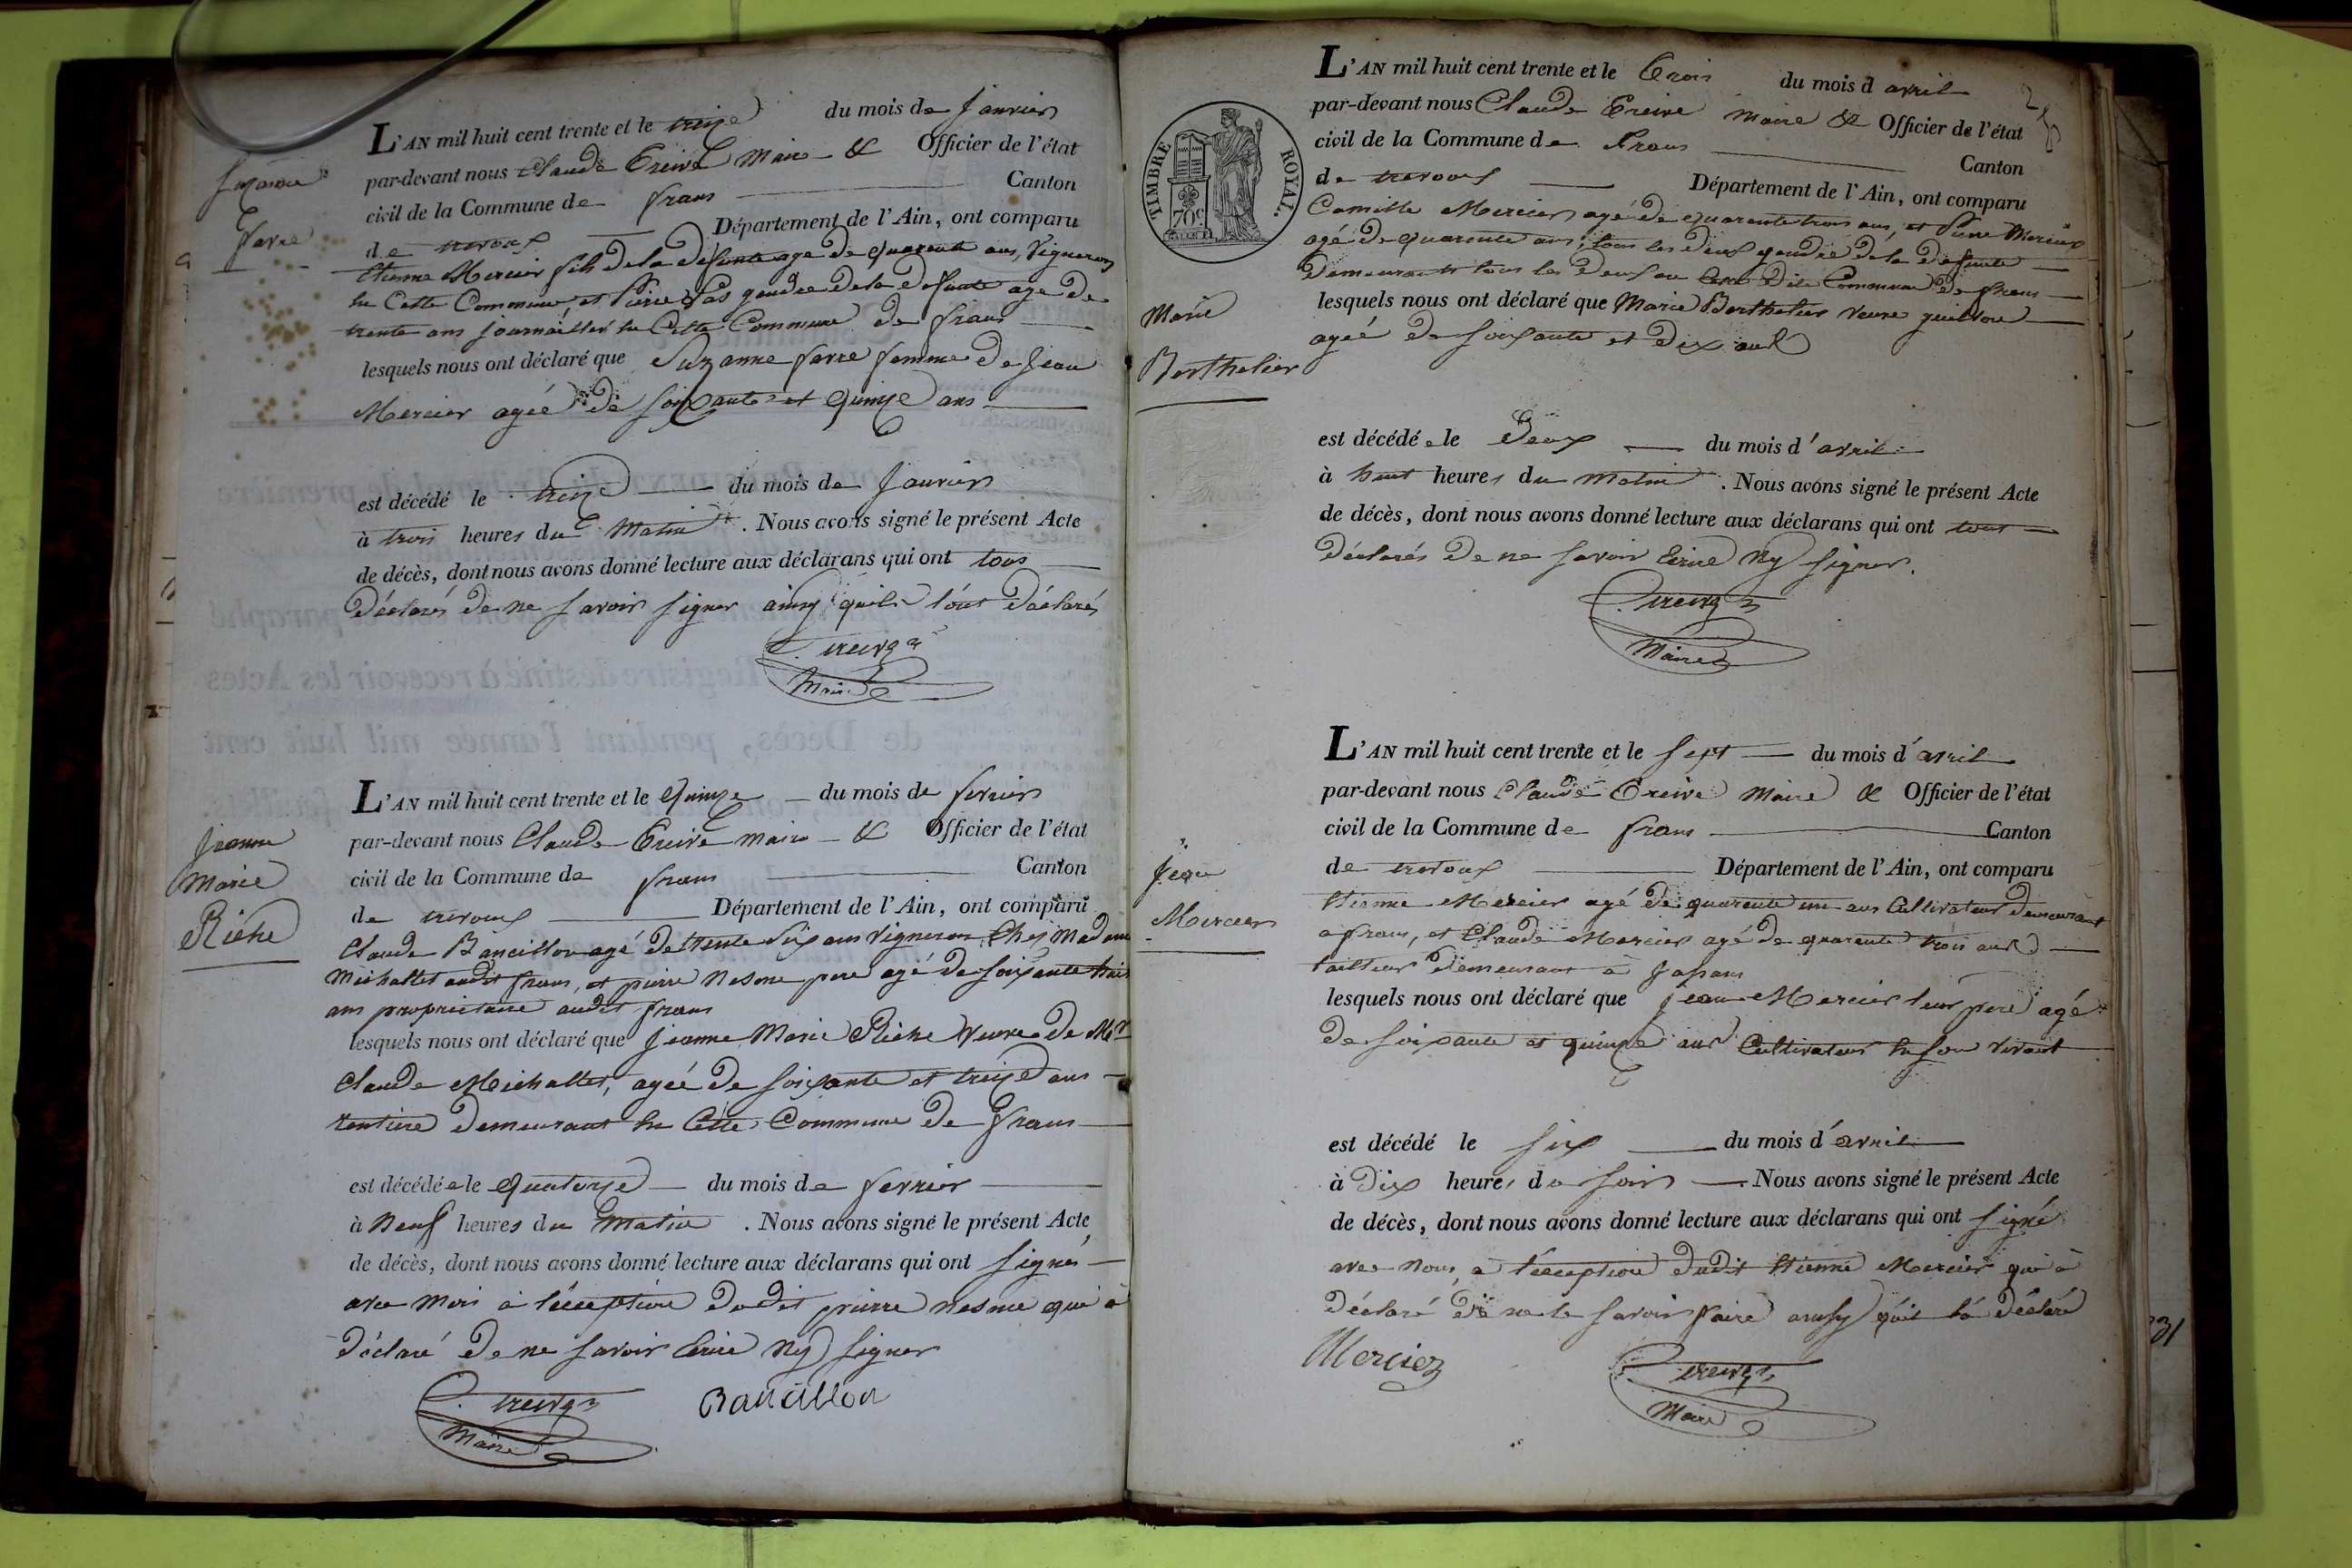 Suzanne
Farre
L'AN mil huit cent trente et le treize du mois de Janvier
par-devant nous Claude Treive Maire & Officier de l'état
civil de la Commune de frans Canton
de trevoux Département de l'Ain, ont comparu
Etienne Mercier fils de la defunte age de quarante ans, Vigneron
en Cette Commune et Pierre gendre de la defunte age de
trente ans Journaillier en Cette Commune de frans
lesquels nous ont déclaré que Suzanne farre femme de Jean
Mercier agée de soixante et quinze ans
est décédé le treize du mois de Janvier
à trois heures du Matin. Nous avons signé le présent Acte
de décès, dont nous avons donné lecture aux déclarans qui ont tous
déclarés de ne savoir signer ainsy quils l'ont déclarés
C. treive
Maire
Jeanne
Marie
Riche
L'AN mil huit cent trente et le quinze du mois de fevrier
par-devant nous Claude Treive maire & Officier de l'état
civil de la Commune de frans Canton
de trevoux Département de l'Ain, ont comparu
Claude Bancillon agé de trente six ans Vigneron Chez Madame
Michallet audit frans, et pierre Nesme pere agé de soixante
ans proprietaire audit frans
lesquels nous ont déclaré que Jeanne Marie Riche Veuve de Mr
Claude Michallet, agée de soixante et treize ans
rentiere demeurant en Cette Commune de frans
est décédée le quatorze du mois de fevrier
à Neuf heures du Matin. Nous avons signé le présent Acte
de décès, dont nous avons donné lecture aux déclarans qui ont signés
avec à l'éception dudit pierre nesme qui à
déclaré de ne savoir Ecrire Ny signer
C. treive
Maire
Bancillon
TIMBRE ROYAL.
70c
Marie
Berthelier
L'AN mil huit cent trente et le trois du mois d avril
par-devant nous Claude Treive Maire & Officier de l'état
civil de la Commune de Frans Canton
de trevoux Département de l'Ain, ont comparu
Camille Mercier agé de quarante trois ans, et Pierre Mercier
agé de quarante ans, tous les deux gendre de la defunte
demeurants tous les deux au dite Commune de frans
lesquels nous ont déclaré que Marie Berthelier Veuve
agée de soixante et dix ans
est décédée le Deux du mois d'avril
à huit heures du Matin. Nous avons signé le présent Acte
de décès, dont nous avons donné lecture aux déclarans qui ont tous
déclarés de ne savoir Ecrire Ny signer.
C. treive
Maire
Jean
Mercier
L'AN mil huit cent trente et le sept du mois d'avril
par-devant nous Claude Treive Maire & Officier de l'état
civil de la Commune de frans Canton
de trevoux Département de l'Ain, ont comparu
Etienne Mercier agé de quarante un ans Cultivateur demeurant
a frans, et Claude Mercier agé de quarante trois ans
tailleur demeurant à
lesquels nous ont déclaré que Jean Mercier leur pere agé
de soixante et quinze ans Cultivateur en son vivant
est décédé le six du mois d'avril
à Dix heures du soir. Nous avons signé le présent Acte
de décès, dont nous avons donné lecture aux déclarans qui ont signé
avec Nous, a l'éception dudit Etienne Mercier qui à
déclaré de ne le savoir faire ainsy qu'il la déclaré
Mercier
C. treive
Maire